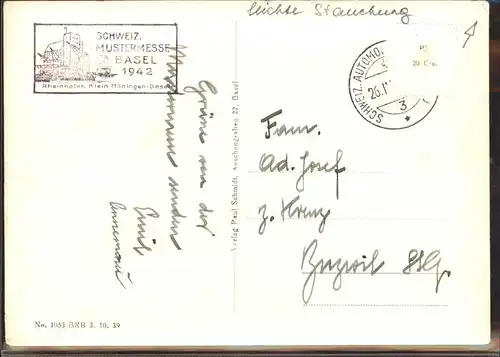 leichte Stauchung
SCHWEIZ.
MUSTERMESSE
BASEL
1942
Rheinhafen Klein Hüningen-Basel
SCHWEIZ. AUTOMO
20 Cts.
26.I
3
Grüsse von der
Mustermesse senden
Emil
Annemarie
Verlag Paul Schmidt, Aeschengraben 22, Basel
Fam.
Ad. Josef
z. Kreuz
Buzwil St.G.
No. 1053 BRB 3. 10. 39